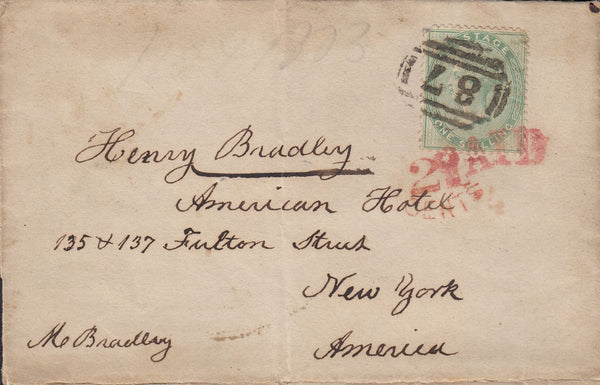 POSTAGE
87
ONE SHILLING
PAID
Henry Bradley
21
CENTS
American Hotel
135 & 137 Fulton Street
New York
Mc Bradley
America